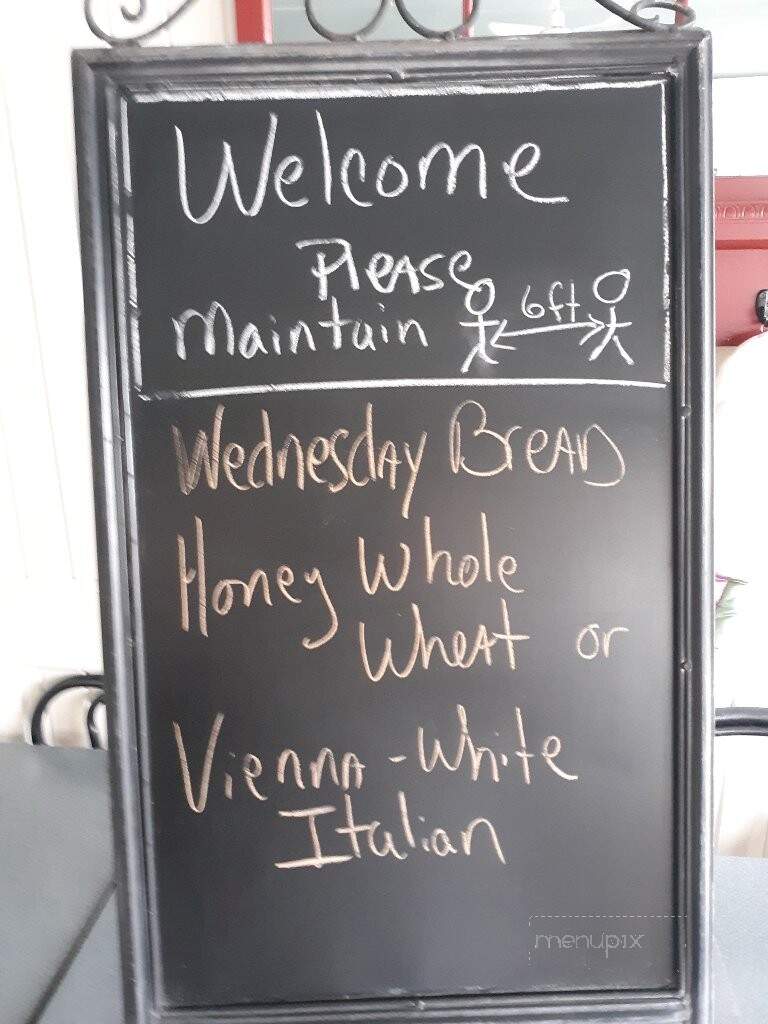 Welcome
Please
Maintain 6ft
Wednesday Bread
Honey Whole
Wheat or
Vienna - White
Italian
menupix